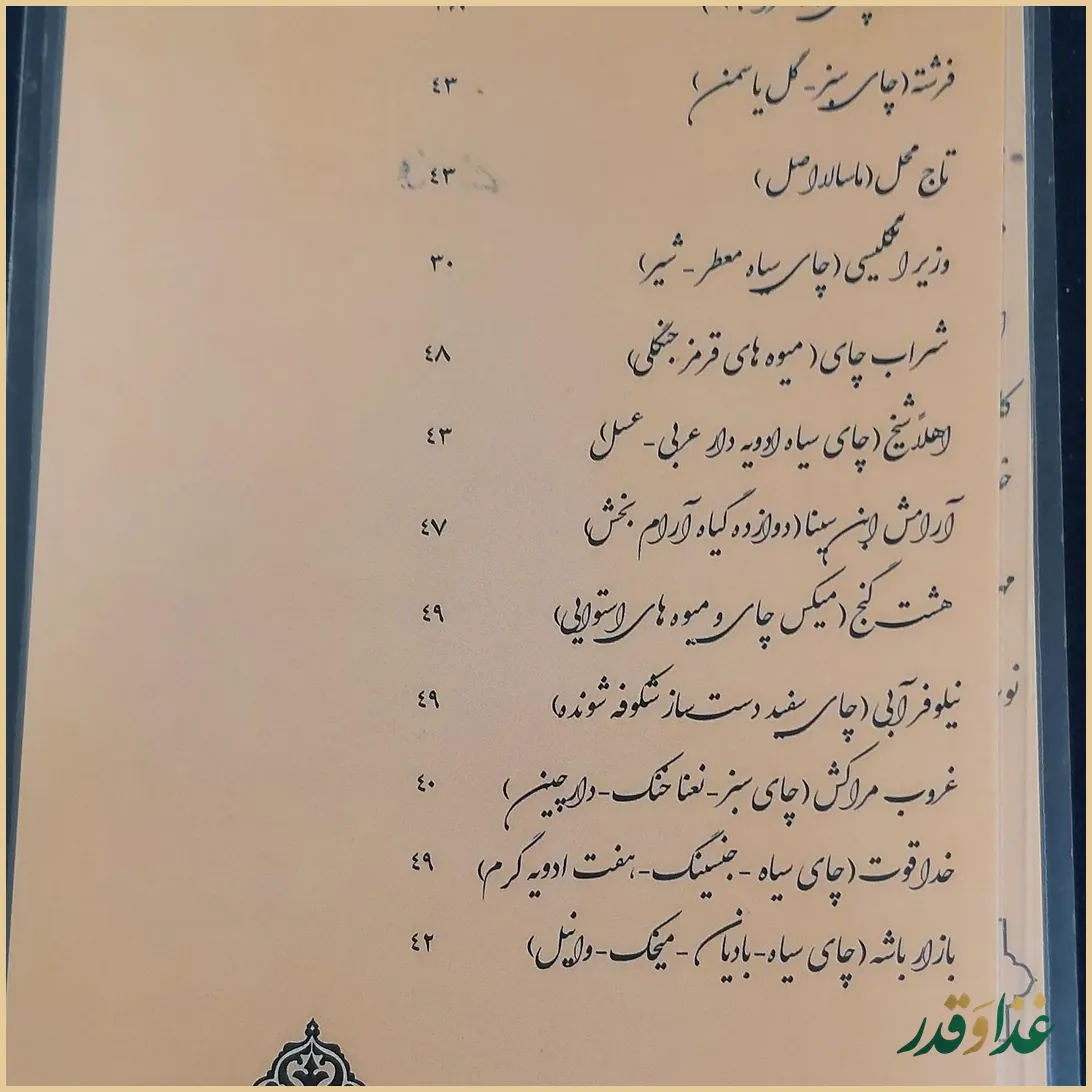 فرشته (چای سبز - گل یاسمن) ٤٣
تاج محل (ماسالا اصل) ٤٣
وزیر انگلیسی (چای سیاه معطر - شیر) ٣٠
شراب چای (میوه های قرمز جنگلی) ٤٨
اهلاً شیخ (چای سیاه ادویه دار عربی - عسل) ٤٣
آرامش ابن سینا (دوازده گیاه آرام بخش) ٤٧
هشت گنج (میکس چای و میوه های استوایی) ٤٩
نیلوفر آبی (چای سفید دست ساز شکوفه شونده) ٤٩
غروب مراکش (چای سبز - نعنا خنک - دارچین) ٤٠
خدا قوت (چای سیاه - جنسینگ - هفت ادویه گرم) ٤٩
بازار باشه (چای سیاه - بادیان - میخک - وانیل) ٤٢
غذا و قدر